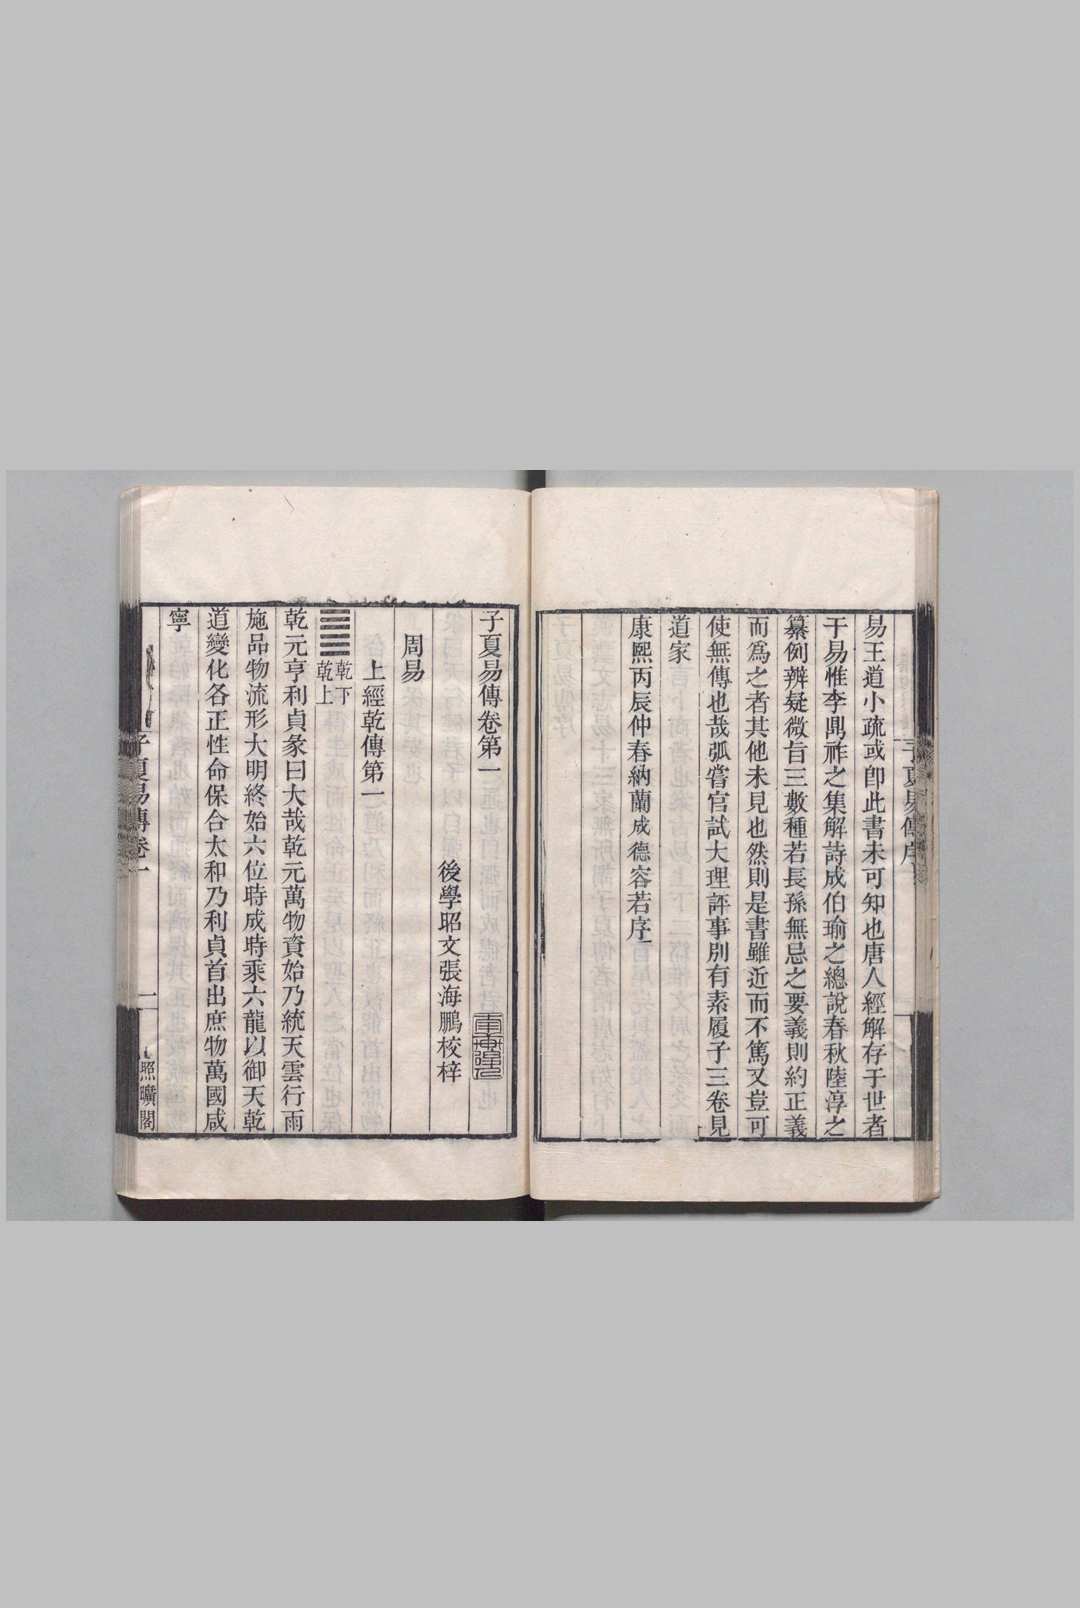 易王道小疏或卽此書未可知也唐人經解存于世者
于易惟李鼎祚之集解詩成伯瑜之總說春秋陸淳之
纂例辨疑微旨三數種若長孫無忌之要義則約正義
而爲之者其他未見也然則是書雖近而不篤又豈可
使無傳也哉弧嘗官試大理評事別有素履子三卷見
道家
康熙丙辰仲春納蘭成德容若序
子夏易傳卷第一
後學昭文張海鵬校梓
周易
上經乾傳第一
乾下
乾上
乾元亨利貞彖曰大哉乾元萬物資始乃統天雲行雨
施品物流形大明終始六位時成時乘六龍以御天乾
道變化各正性命保合太和乃利貞首出庶物萬國咸
寧
子夏易傳卷一
一
照曠閣